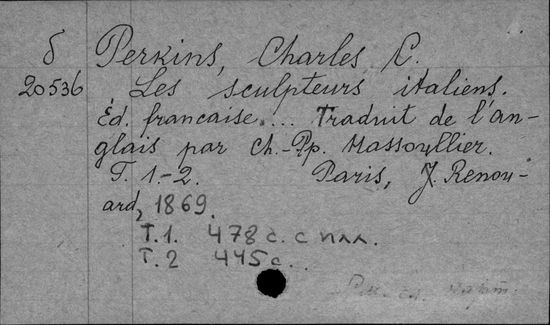 δ Perkins, Charles C.
20536 Les sculpteurs italiens.
Éd. francaise.... Traduit de l'an-
glais par Ch.-Pp. Massoyllier.
T. 1.-2. Paris, J. Renou-
ard, 1869.
T.1. 478 с. с илл.
T.2 445 с.